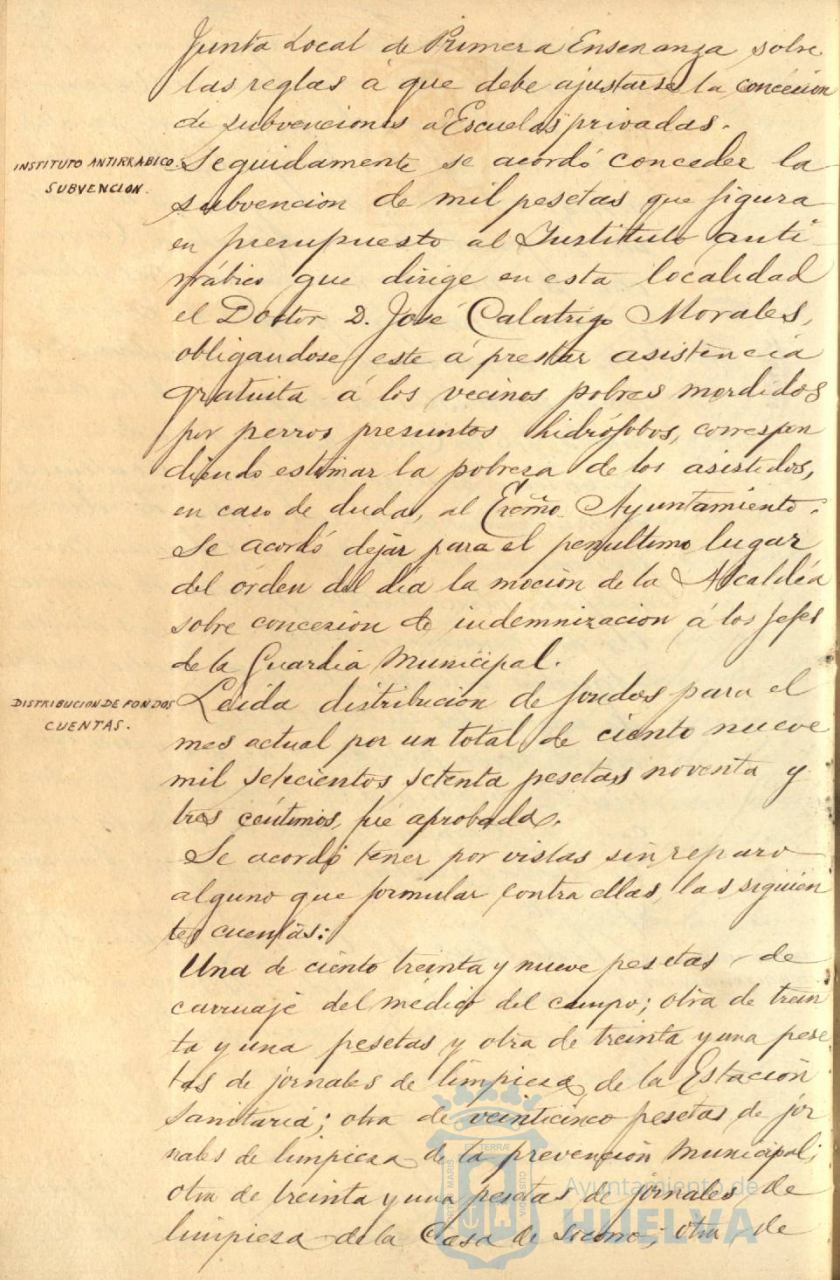 Junta Local de Primera Enseñanza sobre
las reglas á que debe ajustarse la concesion
de subvenciones á Escuelas privadas.
INSTITUTO ANTIRRABICO.
SUBVENCION.
Seguidamente se acordó conceder la
subvencion de mil pesetas que figura
en presupuesto al Instituto anti-
rrábico que dirige en esta localidad
el Doctor D. José Calatrigo Morales,
obligandose este á prestar asistencia
gratuita á los vecinos pobres mordidos
por perros presuntos hidrófobos, correspon
diendo estimar la pobreza de los asistidos,
en caso de duda, al Excmo. Ayuntamiento.
Se acordó dejar para el penultimo lugar
del órden del dia la mocion de la Alcaldía
sobre concesion de indemnizacion á los Jefes
de la Guardia Municipal.
DISTRIBUCION DE FONDOS
CUENTAS.
Leida distribucion de fondos para el
mes actual por un total de ciento nueve
mil setecientos setenta pesetas noventa y
tres céntimos, fué aprobada.
Se acordó tener por vistas sin reparo
alguno que formular contra ellas, las siguien
tes cuentas:
Una de ciento treinta y nueve pesetas de
carruaje del médico del campo; otra de trein
ta y una pesetas y otra de treinta y una pese
tas de jornales de limpieza de la Estación
Sanitaria; otra de veinticinco pesetas de jor
nales de limpieza de la prevención municipal;
otra de treinta y una pesetas de jornales de
limpieza de la Casa de Socorro; otra de
Ayuntamiento de
HUELVA